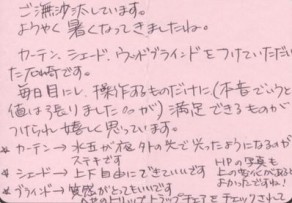 ご無沙汰しています。
ようやく暑くなってきましたね。
カーテン、シェード、ウッドブラインドをつけていただい
た石崎です。
毎日目にし、操作するものだけに、(本音でいうと
値は張りましたが)満足できるものが
つけられ嬉しく思っています。
* カーテン→水玉が 外の光で光ったようになるのが
ステキです
* シェード→上下自由にできていいです
* ブラインド→質感がとてもいいです
HPの写真も
上の があると
よかったですね!
トリップトラップチェアをチェックされて